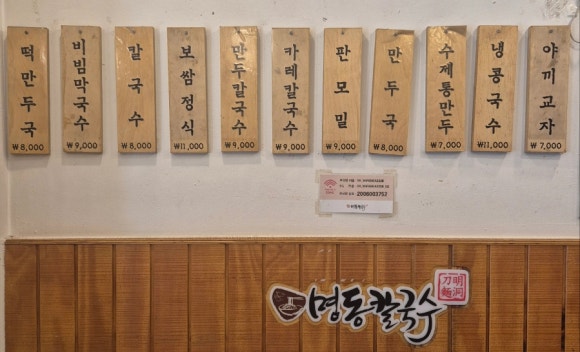 떡만두국
₩8,000
비빔막국수
₩9,000
칼국수
₩8,000
보쌈정식
₩11,000
만두칼국수
₩9,000
카레칼국수
₩9,000
판모밀
₩9,000
만두국
₩8,000
수제통만두
₩7,000
냉콩국수
₩11,000
야끼교자
₩7,000
2008003753
명동칼국수
明洞
刀麵